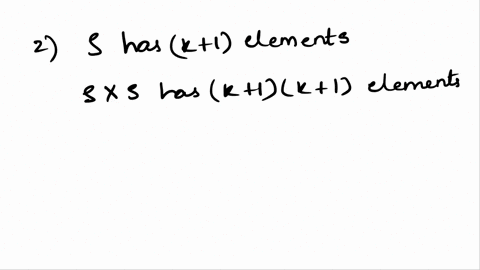 2) S has (k+1) elements
S X S has (k+1)(k+1) elements